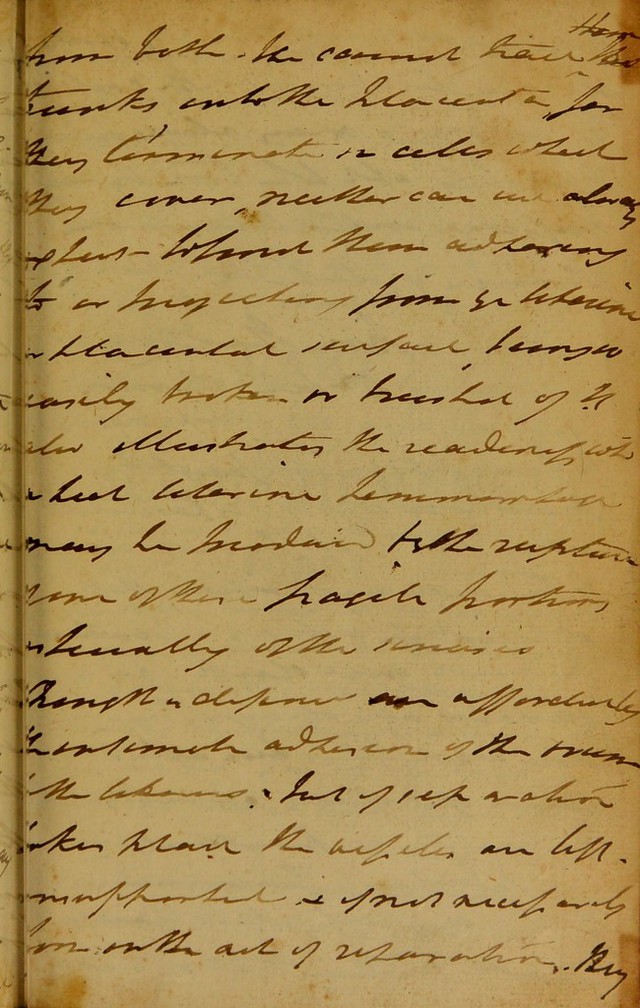 from both. We cannot trace these
trunks into the Placenta, for
they terminate in cells which
they cover, neither can we always
expect to find them adhering
to or projecting from ye Uterine
or Placental surface, being so
easily broken or brushed off. It
also illustrates the readiness with
which Uterine hemmorrhage
may be produced by the rupture
some of these fragile portions
especially of the
though a defence are afforded by
the intimate adhesion of the ovum
to the Uterus. But if separation
takes place the vessels are left
unsupported & if not necessarily
torn in the act of separation. They